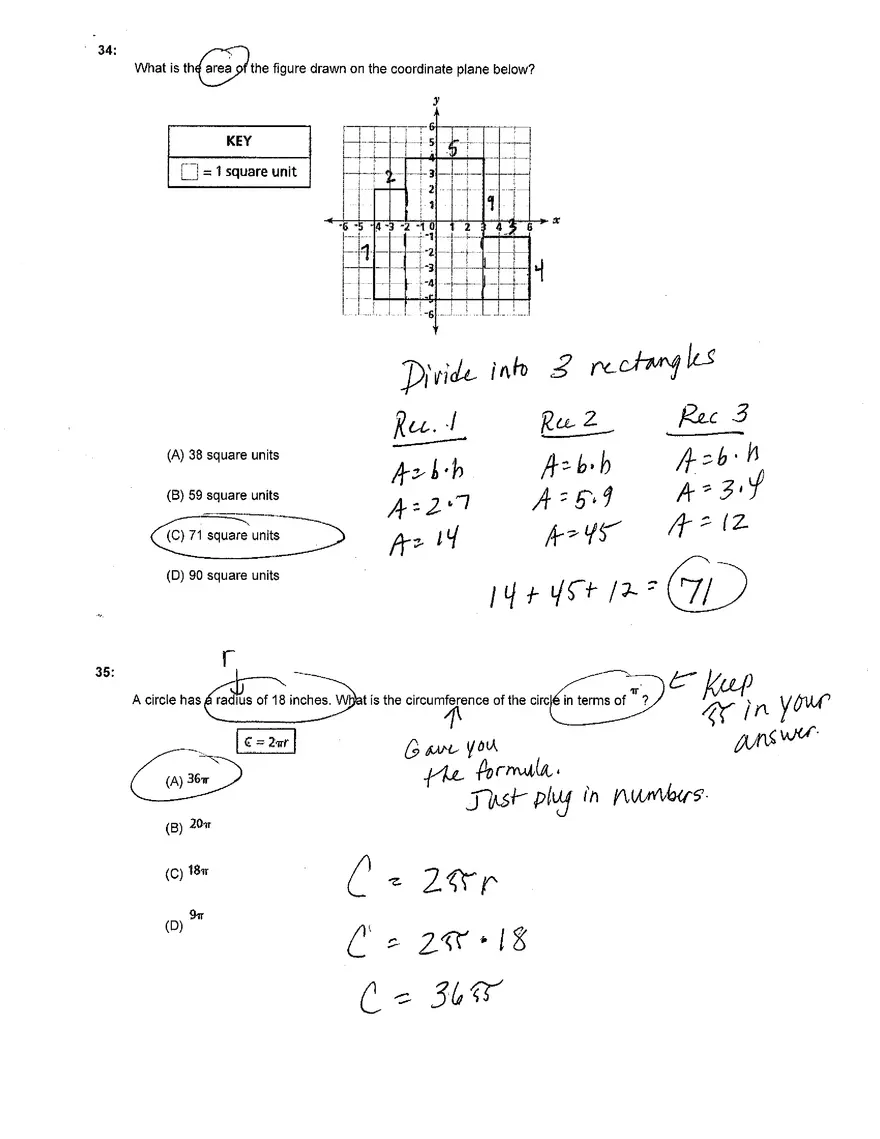 34:
What is the area of the figure drawn on the coordinate plane below?
KEY
= 1 square unit
y
6
5
4
3
2
1
-6 -5 -4 -3 -2 -1 0 1 2 3 4 5 6 x
-1
-2
-3
-4
-5
-6
2
5
7
9
3
4
Divide into 3 rectangles
Rec. 1 Rec 2 Rec 3
A=b·h A=b·h A=b·h
A=2·7 A=5·9 A=3·4
A=14 A=45 A=12
14+45+12=71
(A) 38 square units
(B) 59 square units
(C) 71 square units
(D) 90 square units
35:
r
A circle has a radius of 18 inches. What is the circumference of the circle in terms of π?
← Keep
π in your
answer.
C = 2πr
Gave you
the formula.
Just plug in numbers.
(A) 36π
(B) 20π
(C) 18π
(D) 9π
C = 2πr
C = 2π·18
C = 36π